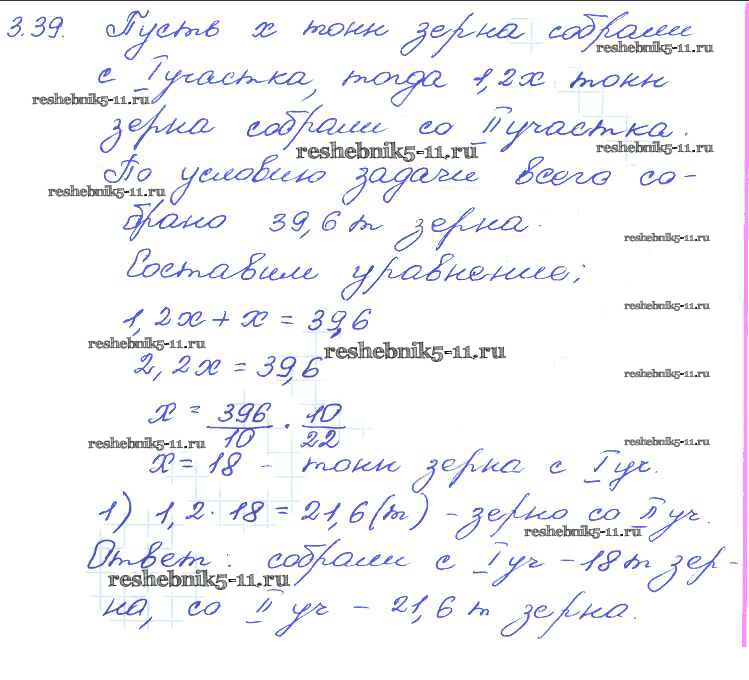 3.39. Пусть x тонн зерна собрали
reshebnik5-11.ru
с I участка, тогда 1,2x тонн
reshebnik5-11.ru
зерна собрали со II участка.
reshebnik5-11.ru reshebnik5-11.ru
По условию задачи всего со-
reshebnik5-11.ru
брано 39,6 т зерна.
reshebnik5-11.ru
Составим уравнение:
1,2x + x = 39,6
reshebnik5-11.ru
reshebnik5-11.ru reshebnik5-11.ru
2,2x = 39,6
reshebnik5-11.ru
x = 396/10 · 10/22
reshebnik5-11.ru reshebnik5-11.ru
x = 18 - тонн зерна с I уч.
1) 1,2 · 18 = 21,6 (т) - зерно со II уч.
reshebnik5-11.ru
Ответ: собрали с I уч - 18 т зер-
reshebnik5-11.ru
на, со II уч - 21,6 т зерна.